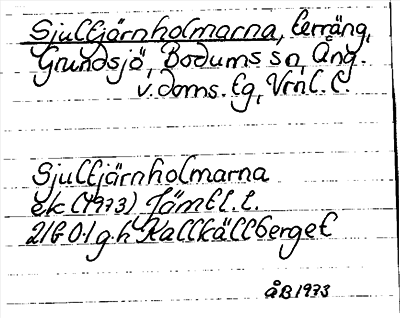 Sjultjärnholmarna, terräng,
Grundsjö, Bodums sn, Ång.
v. doms. tg, Vrnl. l.
Sjultjärnholmarna
ek (1973) Jämtl. l.
21G 0-1 g-h Kallkällberget
åB 1973